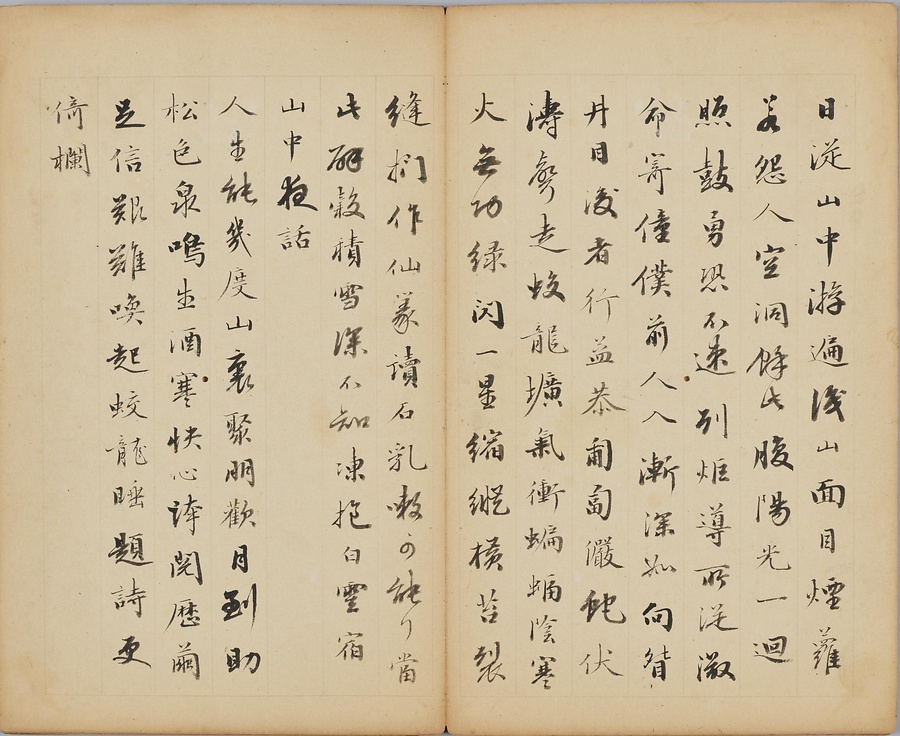 日從山中游遍後山面目煙蘿
若怨人空洞餘此腹陽光一迴
照鼓勇恐不速列炬導所從激
命寄僮僕前人入漸深如向
井日後者行益恭匍匐儼蛇伏
濤聲走蛟龍壙氣衝蝙蝠陰寒
火無功綠閃一星縮縱橫苔裂
縫捫作仙篆讀石乳嗽可能了當
此辟穀積雪深不知凍抱白雲宿
山中夜話
人生能幾度山裏聚朋歡月到助
松色泉鳴生酒寒快心詩閱歷繭
足信艱難喚起蛟龍睡題詩更
倚欄